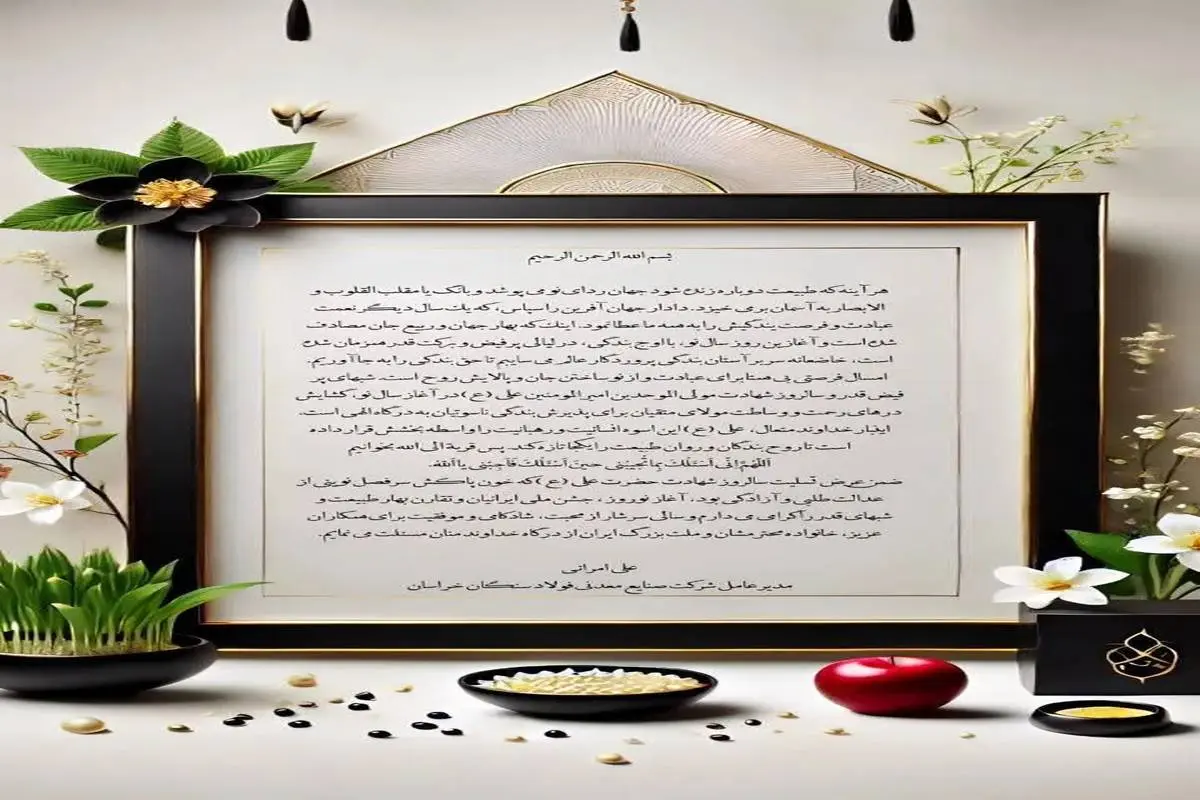 بسم الله الرحمن الرحیم
هر آینه که طبیعت دوباره زنده شود جهان ردای نو می پوشد و بانگ یا مقلب القلوب و
الابصار به آسمان بر می خیزد. دادار جهان آفرین را سپاس، که یک سال دیگر نعمت
عبادت و فرصت بندگیش را به همه ما عطا نمود. اینک که بهار جهان و ربیع جان مصادف
شده است و آغازین روز سال نو، با اوج بندگی، در لیالی پر فیض و برکت قدر همزمان شده
است، خاضعانه سر بر آستان بندگی پروردگار عالم می ساییم تا حق بندگی را به جا آوریم.
امسال فرصتی بی همتا برای عبادت و از نو ساختن جان و پالایش روح است. شبهای پر
فیض قدر و سالروز شهادت مولی الموحدین امیرالمومنین علی (ع) در آغاز سال نو، گشایش
درهای رحمت و وساطت مولای متقیان برای پذیرش بندگی ناسوتیان به درگاه الهی است.
اینبار خداوند متعال، علی (ع) این اسوه انسانیت و رهبانیت را واسطه بخشش قرار داده
است تا روح بندگان و روان طبیعت را یکجا تازه کند پس قربة الی الله بخوانیم
اَللّهُمَّ اِنّی اَسْئَلُکَ بِما تُجیبُنی حینَ اَسْئَلُکَ فَاَجِبْنی یا اَللّهُ.
ضمن عرض تسلیت سالروز شهادت حضرت علی (ع) که خون پاکش سرفصل نوینی از
عدالت طلبی و آزادگی بود، آغاز نوروز، جشن ملی ایرانیان و تقارن بهار طبیعت و
شبهای قدر را گرامی می دارم و سالی سرشار از محبت، شادکامی و موفقیت برای همکاران
عزیز، خانواده محترمشان و ملت بزرگ ایران از درگاه خداوند منان مسئلت می نمایم.
علی امرانی
مدیر عامل شرکت صنایع معدنی فولاد سنگان خراسان